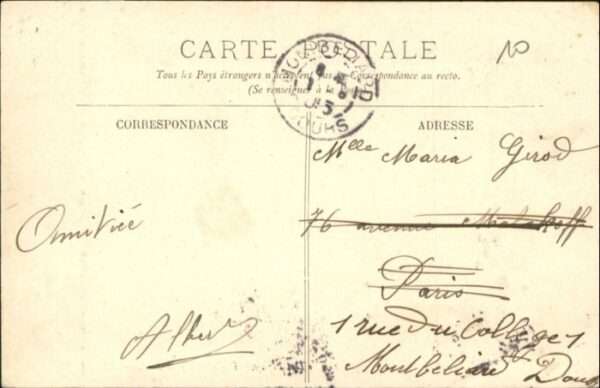 CARTE POSTALE
Tous les Pays étrangers n'acceptent pas la Correspondance au recto.
(Se renseigner à la Poste)
CORRESPONDANCE
ADRESSE
Mlle Maria Girod
76 avenue Malakoff
Paris
1 rue du College 1
Montbéliard Doubs
Amitiée
Albert
MONTBELIARD
DOUBS